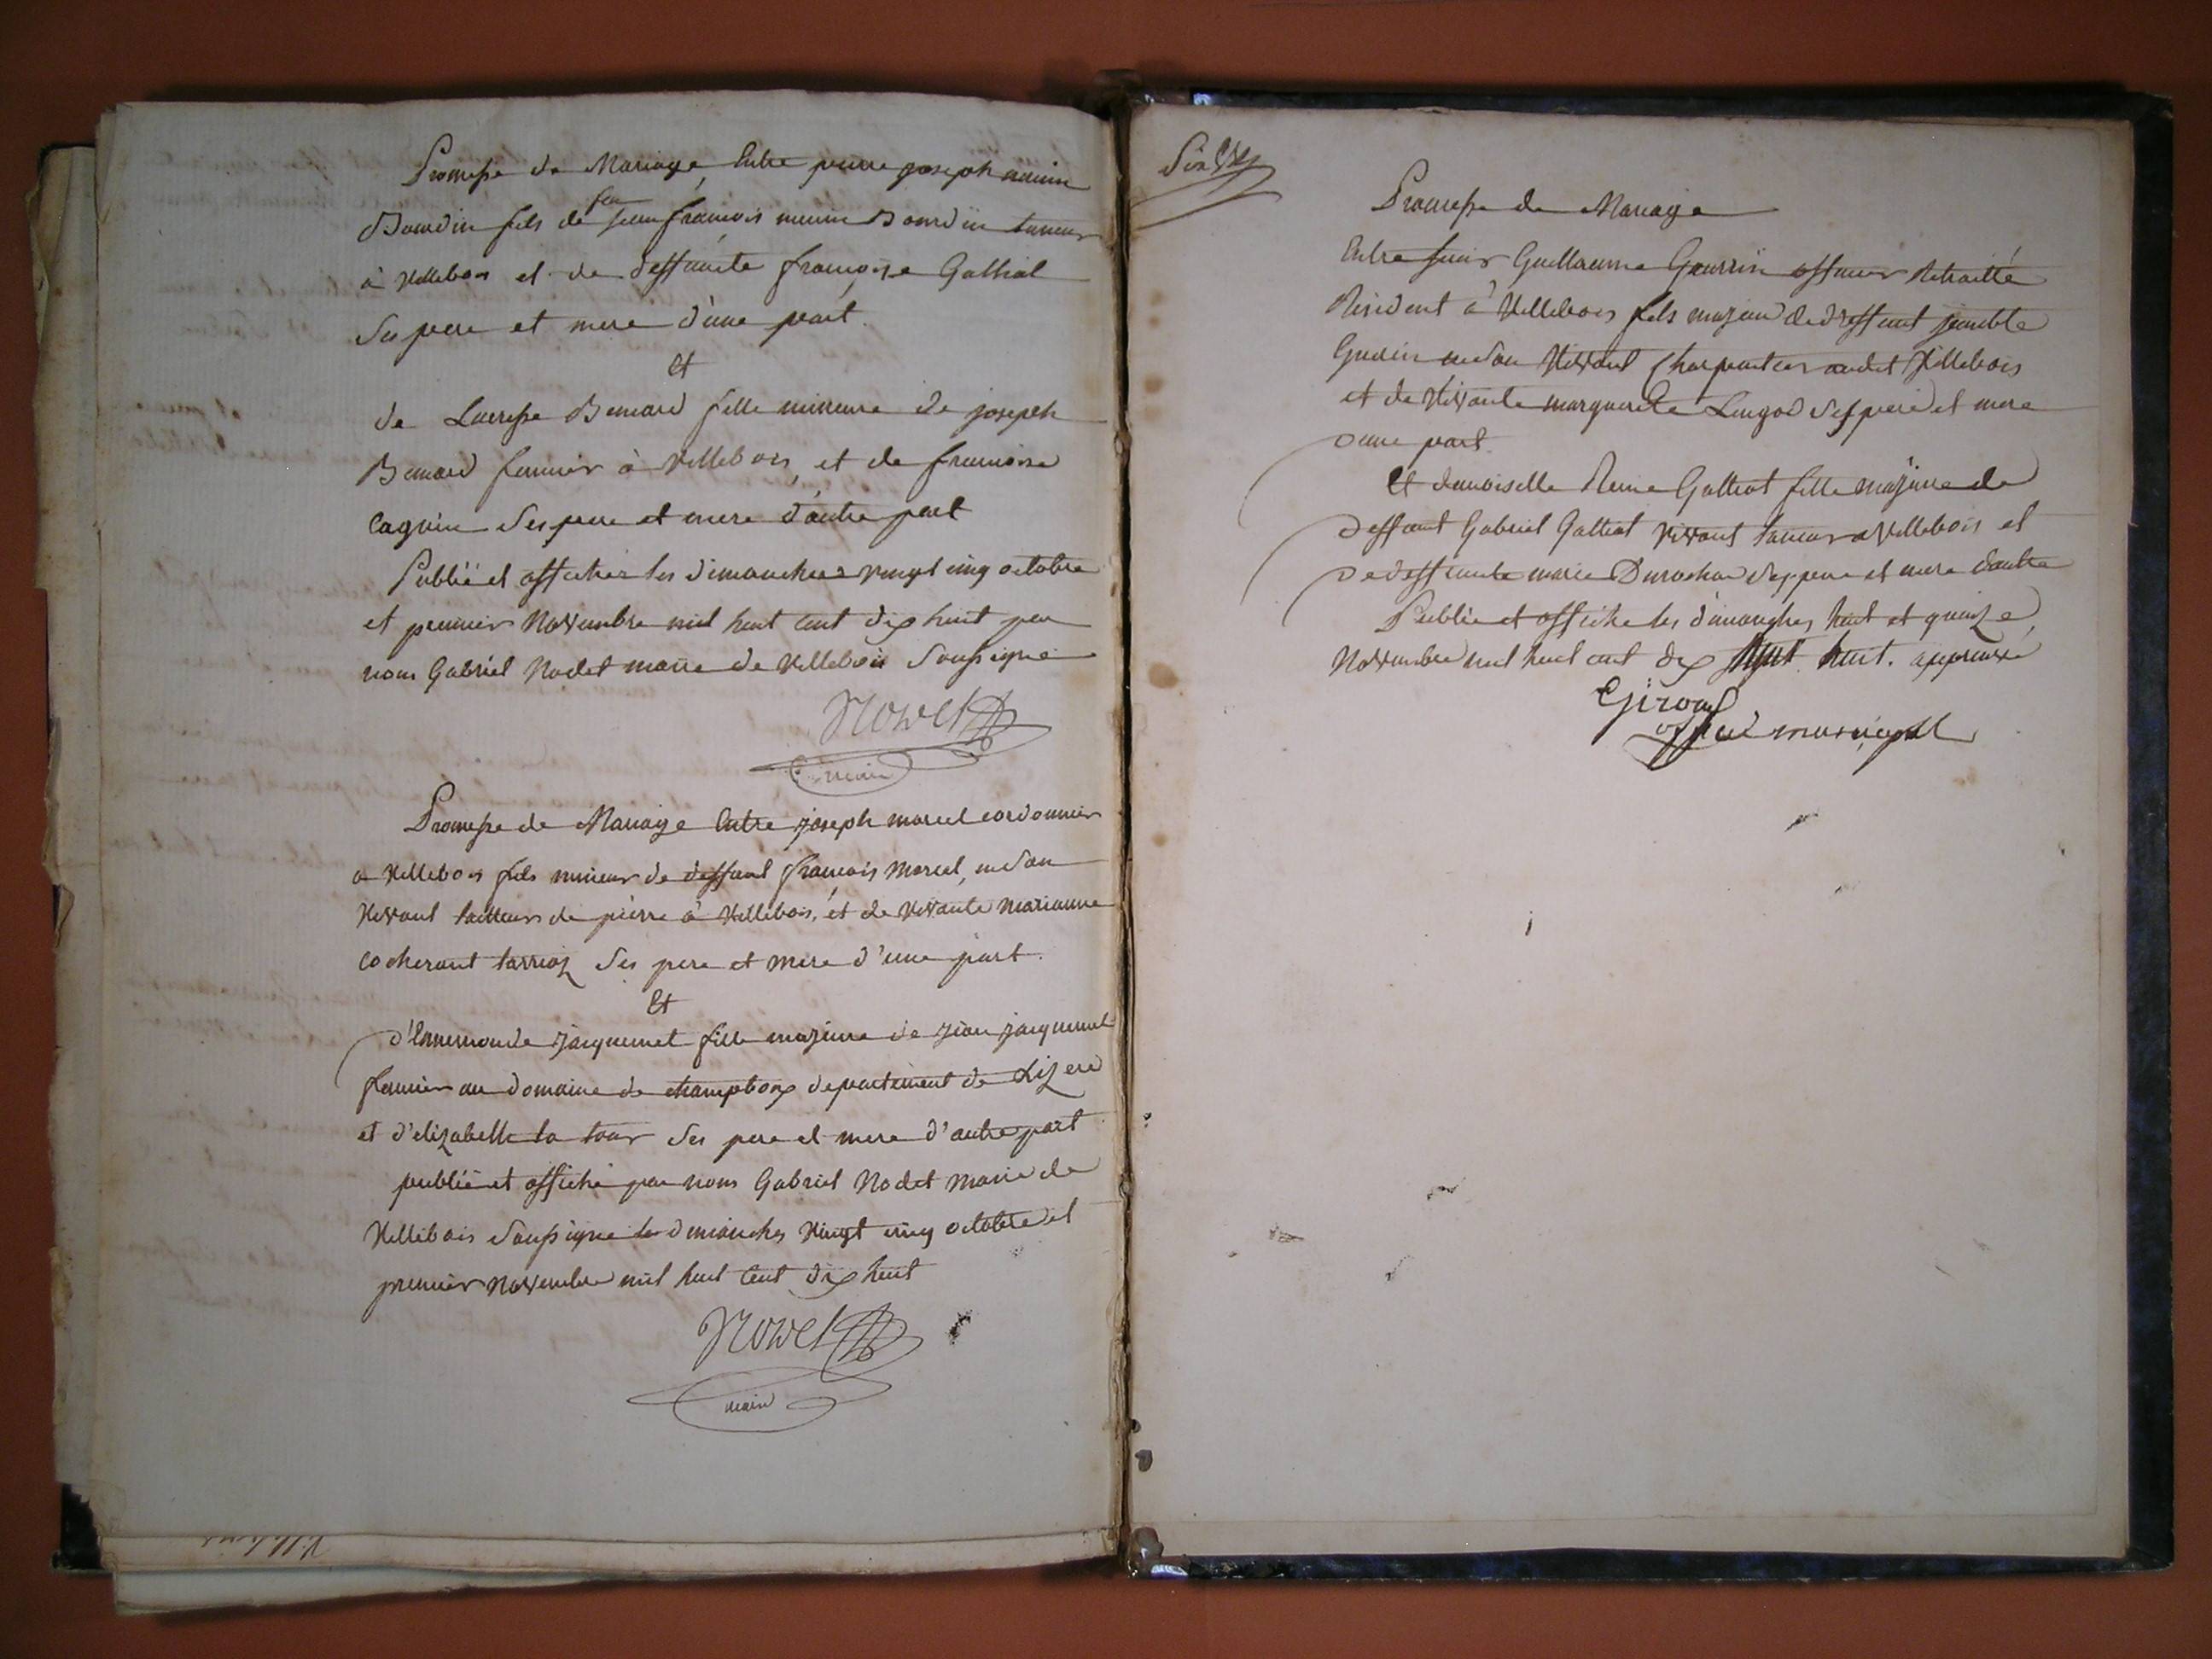 Promesse de Mariage, Entre pierre joseph
Bourdin fils de feu jean françois Bourdin
à Villebois et de deffunte françoise Galliat
Ses pere et mere d'une part.
Et
de Lucresse Bernard fille mineure de joseph
Bernard fermier à Villebois, et de francoise
Ses pere et mere d'autre part
Publié et affiches les dimanches vingt cinq octobre
et premier Novembre mil huit cent dix huit par
nous Gabriel Nodet maire de Villebois Soussigné
Nodet
maire
Promesse de Mariage Entre joseph marcel cordonnier
a Villebois fils mineur de deffunt françois Marcel, en son
Vivant tailleur de pierre à Villebois, et de Vivante marianne
Ses pere et mere d'une part.
Et
d'Ennemonde jacquemet fille majeure de jean jacquemet
fermier au domaine de departement de Lizere
et d'elizabelle la tour Ses pere et mere d'autre part
publié et affiché par nous Gabriel Nodet Maire de
Villebois Soussigné les dimanches Vingt cinq octobre et
premier Novembre mil huit Cent dix huit
Nodet
maire
Six
Promesse de Mariage
Entre sieur Guillaume officier Retraitté
Resident à Villebois fils majeur de deffunt
en son Vivant Charpentier audit Villebois
et de Vivante marguerite Ses pere et mere
d'une part.
Et demoiselle Reine Galliat fille majeure de
deffunt Gabriel Galliat Vivant taneur a Villebois et
de deffunte marie Ses pere et mere d'autre
Publié et affiché les dimanches huit et quinze
Novembre mil huit cent dix huit. approuvé
municipal